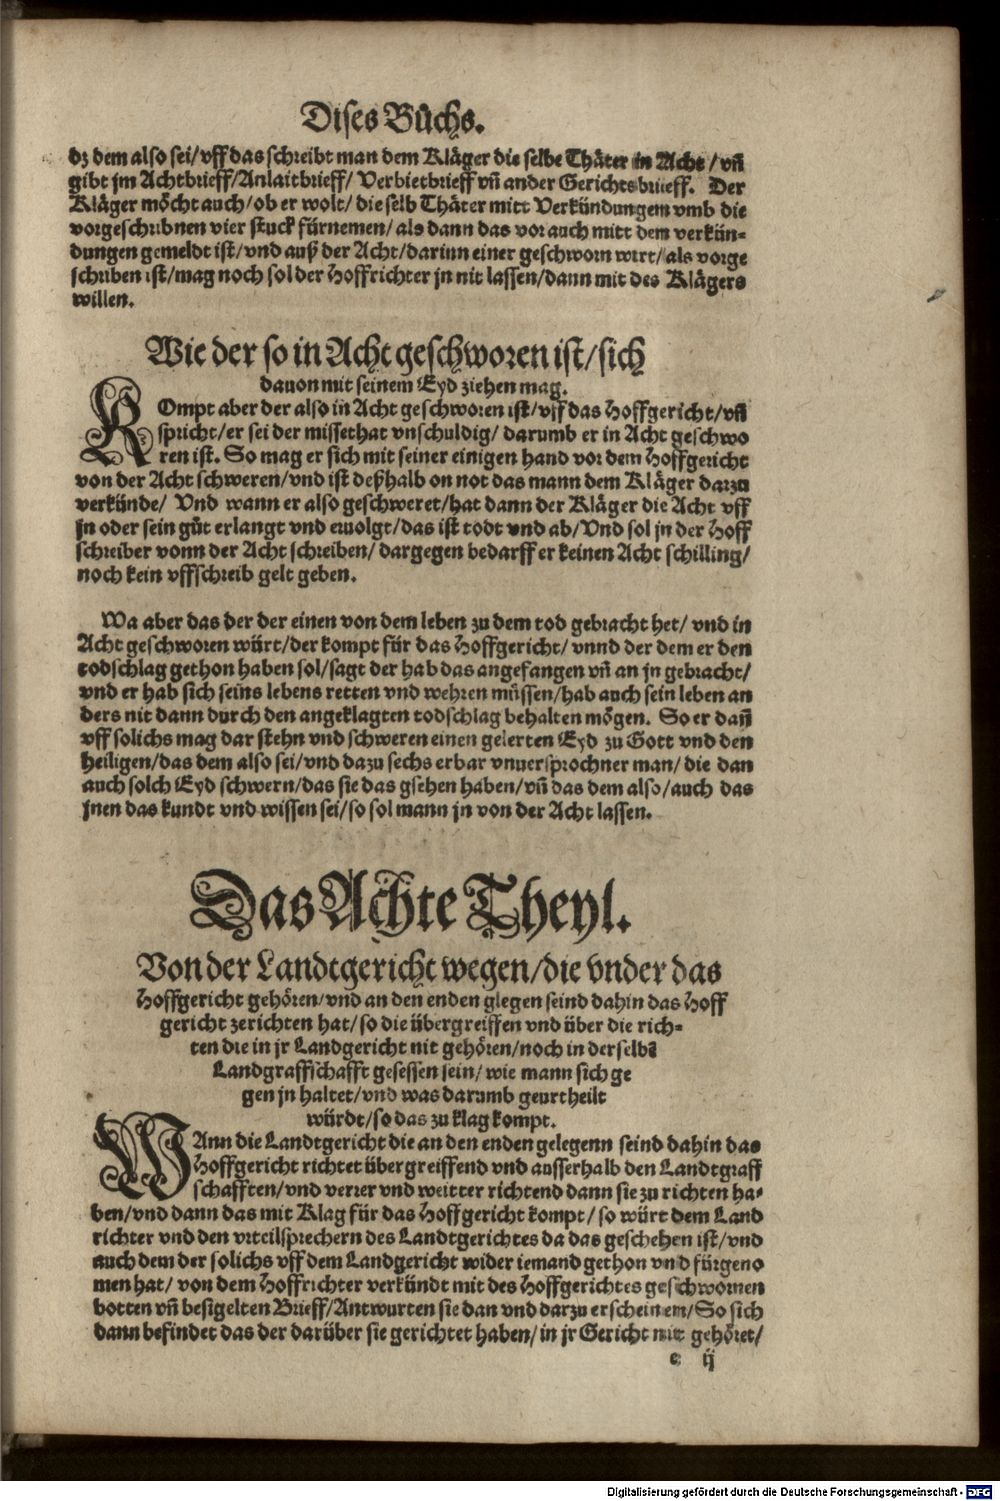 Dises Bůchs.
dz dem also sei/vff das schreibt man dem Kläger die selbe Thäter in Acht/vñ
gibt jm Achtbrieff/Anlaitbrieff/ Verbietbrieff vñ ander Gerichtsbrieff. Der
Kläger möcht auch/ob er wolt/die selb Thäter mitt Verkündungen vmb die
vorgeschribnen vier stuck fürnemen/als dann das vor auch mitt dem verkün-
dungen gemeldt ist/vnd auß der Acht/darinn einer geschworn wirt/als vorge
schriben ist/mag noch sol der Hoffrichter jn nit lassen/dann mit des Klägers
willen.
Wie der so in Acht geschworen ist/sich
dauon mit seinem Eyd ziehen mag.
KOmpt aber der also in Acht geschworen ist/vff das Hoffgericht/vñ
spricht/er sei der missethat vnschuldig/ darumb er in Acht geschwo
ren ist. So mag er sich mit seiner einigen hand vor dem Hoffgericht
von der Acht schweren/vnd ist deßhalb on not das mann dem Kläger darzu
verkünde/ Vnd wann er also geschweret/hat dann der Kläger die Acht vff
jn oder sein gůt erlangt vnd ervolgt/das ist todt vnd ab/Vnd sol jn der Hoff
schreiber vonn der Acht schreiben/ dargegen bedarff er keinen Acht schilling/
noch kein vffschreib gelt geben.
Wa aber das der der einen von dem leben zu dem tod gebracht het/ vnd in
Acht geschworen würt/der kompt für das Hoffgericht/ vnnd der dem er den
todschlag gethon haben sol/sagt der hab das angefangen vñ an jn gebracht/
vnd er hab sich seins lebens retten vnd wehren müssen/hab auch sein leben an
ders nit dann durch den angeklagten todschlag behalten mögen. So er dañ
vff solichs mag dar stehn vnd schweren einen gelerten Eyd zu Gott vnd den
heiligen/das dem also sei/vnd dazu sechs erbar vnuersprochner man/ die dan
auch solch Eyd schwern/das sie das gsehen haben/vñ das dem also/auch das
jnen das kundt vnd wissen sei/so sol mann jn von der Acht lassen.
Das Achte Theyl.
Von der Landtgericht wegen/die vnder das
Hoffgericht gehören/vnd an den enden glegen seind dahin das Hoff
gericht zerichten hat/so die übergreiffen vnd über die rich-
ten die in jr Landgericht nit gehören/noch in derselbē
Landgraffschafft gesessen sein/wie mann sich ge
gen jn haltet/vnd was darumb geurtheilt
würdt/so das zu klag kompt.
WAnn die Landtgericht die an den enden gelegenn seind dahin das
Hoffgericht richtet übergreiffend vnd ausserhalb den Landtgraff
schafften/vnd verrer vnd weitter richtend dann sie zu richten ha-
ben/vnd dann das mit Klag für das Hoffgericht kompt/so würt dem Land
richter vnd den vrteilsprechern des Landtgerichtes da das geschehen ist/vnd
auch dem der solichs vff dem Landgericht wider iemand gethon vnd fürgeno
men hat/ von dem Hoffrichter verkündt mit des Hoffgerichtes geschwornen
botten vñ besigelten Brieff/Antwurten sie dan vnd darzu erscheinem/So sich
dann befindet das der darüber sie gerichtet haben/in jr Gericht nitt gehöret/
e ij
Digitalisierung gefördert durch die Deutsche Forschungsgemeinschaft - DFG